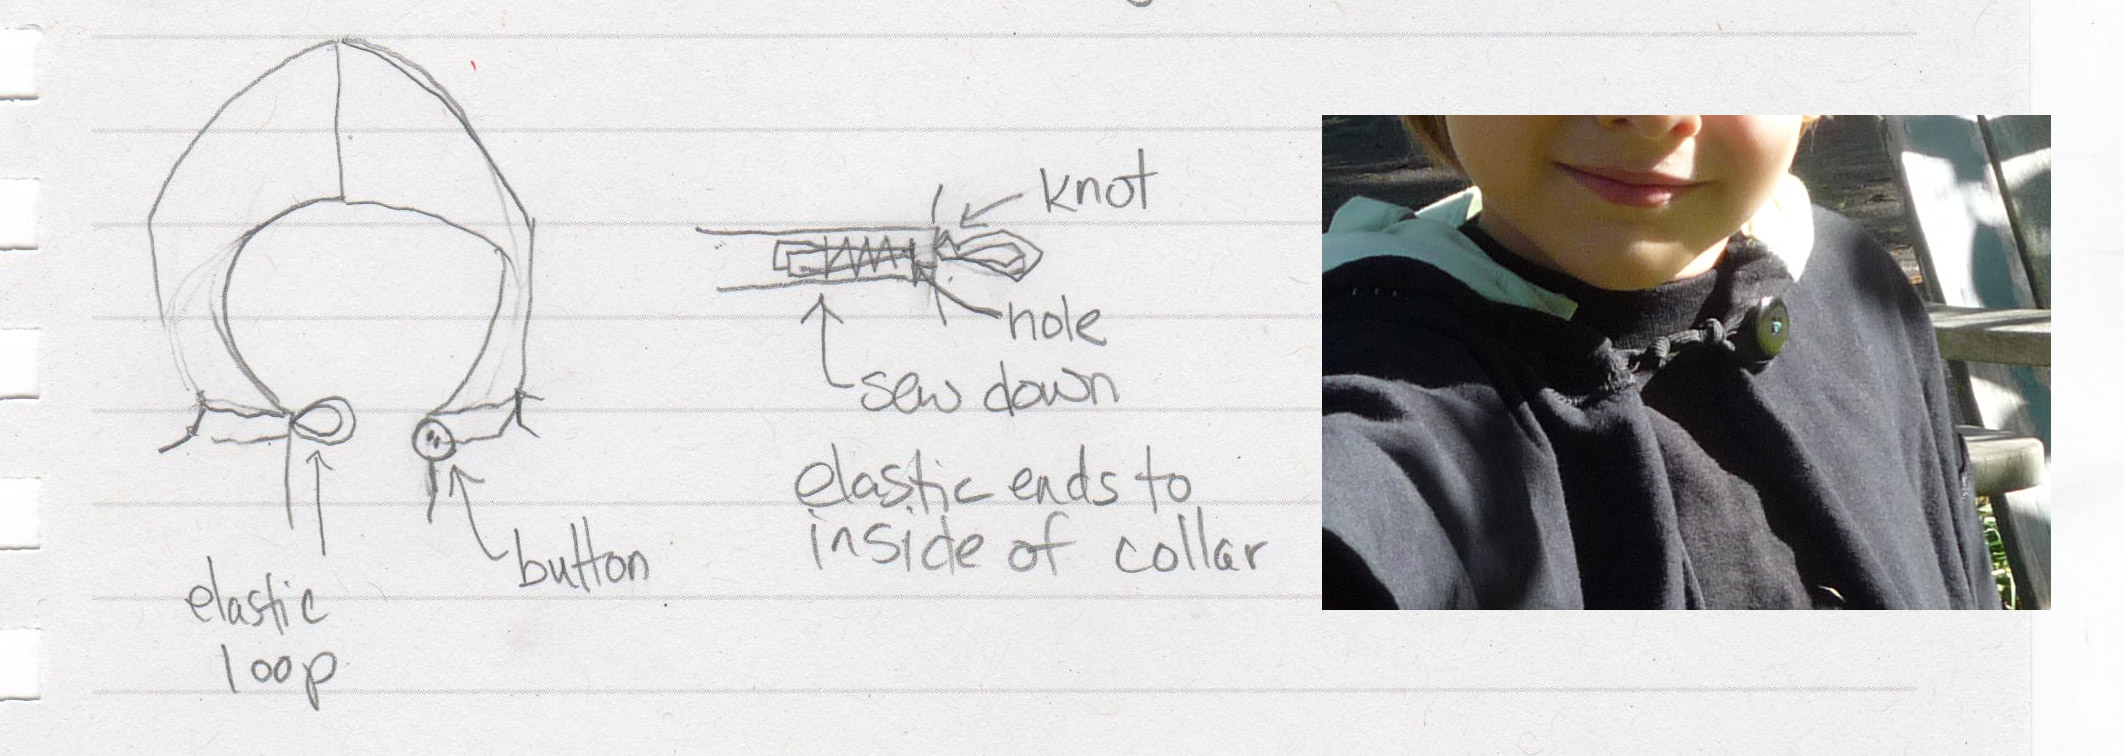 knot
hole
sew down
elastic ends to
inside of collar
button
elastic
loop